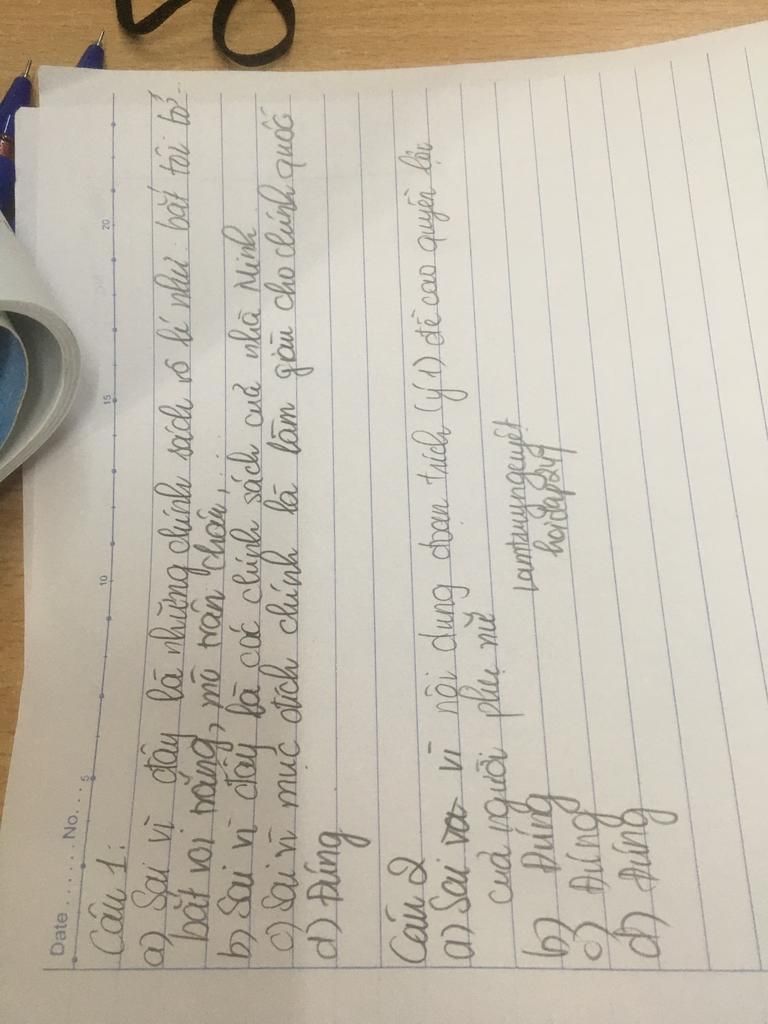 Date ....... No. ...
5 10 15 20
Câu 1:
a) Sai vì đây là những chính sách vô lí như: bắt tôi bỏ ...
bắt voi trắng, mò trân châu, ...
b) Sai vì đây là các chính sách của nhà Minh
c) Sai vì mục đích chính là làm giàu cho chính quốc
d) Đúng
Câu 2
a) Sai vì nội dung đoạn trích (ý 1) đề cao quyền lợi
của người phụ nữ
lamtuyngeuyet
hoidap247
b) Đúng
c) Đúng
d) Đúng